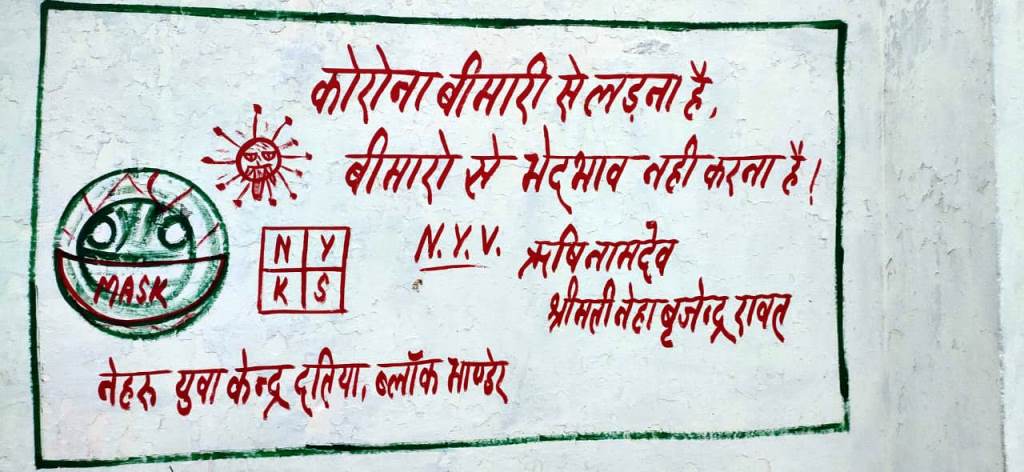 कोरोना बीमारी से लड़ना है,
बीमारो से भेदभाव नही करना है!
MASK
N Y
K S
N.Y.V. ऋषि नामदेव
श्रीमती नेहा बृजेन्द्र रावत
नेहरू युवा केन्द्र दतिया, ब्लॉक भाण्डेर